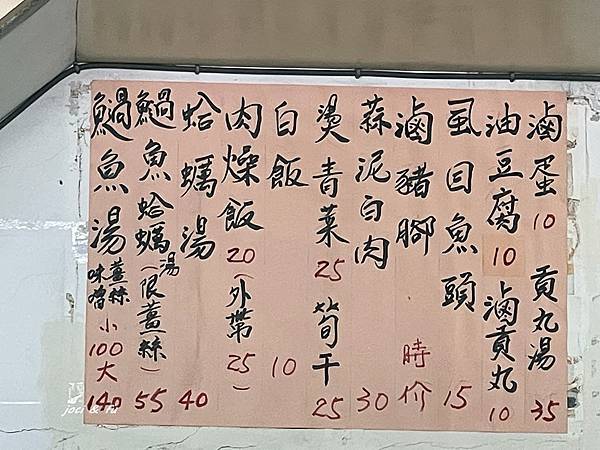 滷蛋10 貢丸湯35
油豆腐10 滷貢丸10
虱目魚頭15
滷豬腳 時价
蒜泥白肉30
燙青菜25 筍干25
白飯10
肉燥飯20(外帶25)
蛤蠣湯40
鯝魚蛤蠣湯(限薑絲)55
鯝魚湯 薑絲 味噌 小100 大140